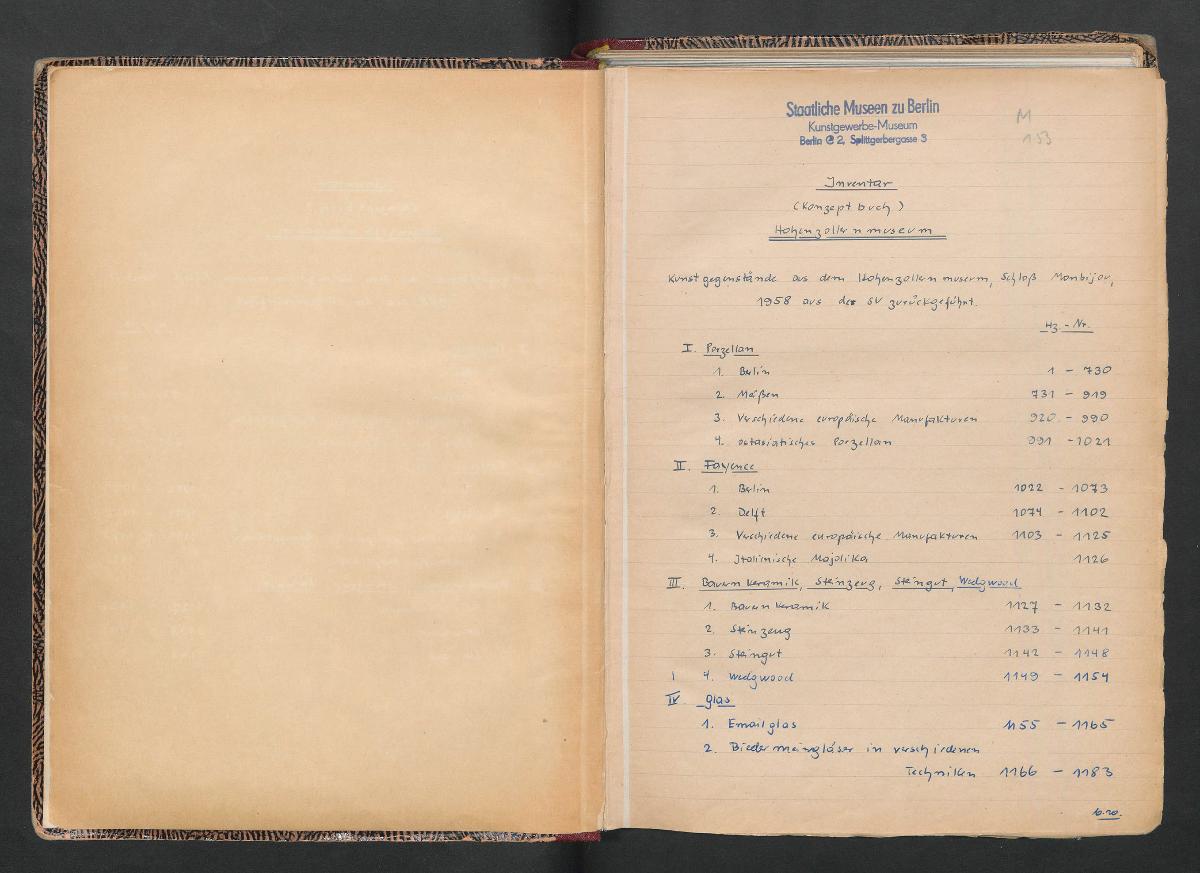 Staatliche Museen zu Berlin
Kunstgewerbe-Museum
Berlin C 2, Splittgerbergasse 3
M
153
Inventar
(Konzeptbuch)
Hohenzollernmuseum
Kunstgegenstände aus dem Hohenzollernmuseum, Schloß Monbijou,
1958 aus der SU zurückgeführt.
Hz.-Nr.
I. Porzellan
1. Berlin 1 - 730
2. Meißen 731 - 919
3. Verschiedene europäische Manufakturen 920 - 990
4. ostasiatisches Porzellan 991 - 1021
II. Fayence
1. Berlin 1022 - 1073
2. Delft 1074 - 1102
3. Verschiedene europäische Manufakturen 1103 - 1125
4. Italienische Majolika 1126
III. Bauernkeramik, Steinzeug, Steingut, Wedgwood
1. Bauernkeramik 1127 - 1132
2. Steinzeug 1133 - 1141
3. Steingut 1142 - 1148
4. Wedgwood 1149 - 1154
IV. Glas
1. Emailglas 1155 - 1165
2. Biedermeiergläser in verschiedenen
Techniken 1166 - 1183